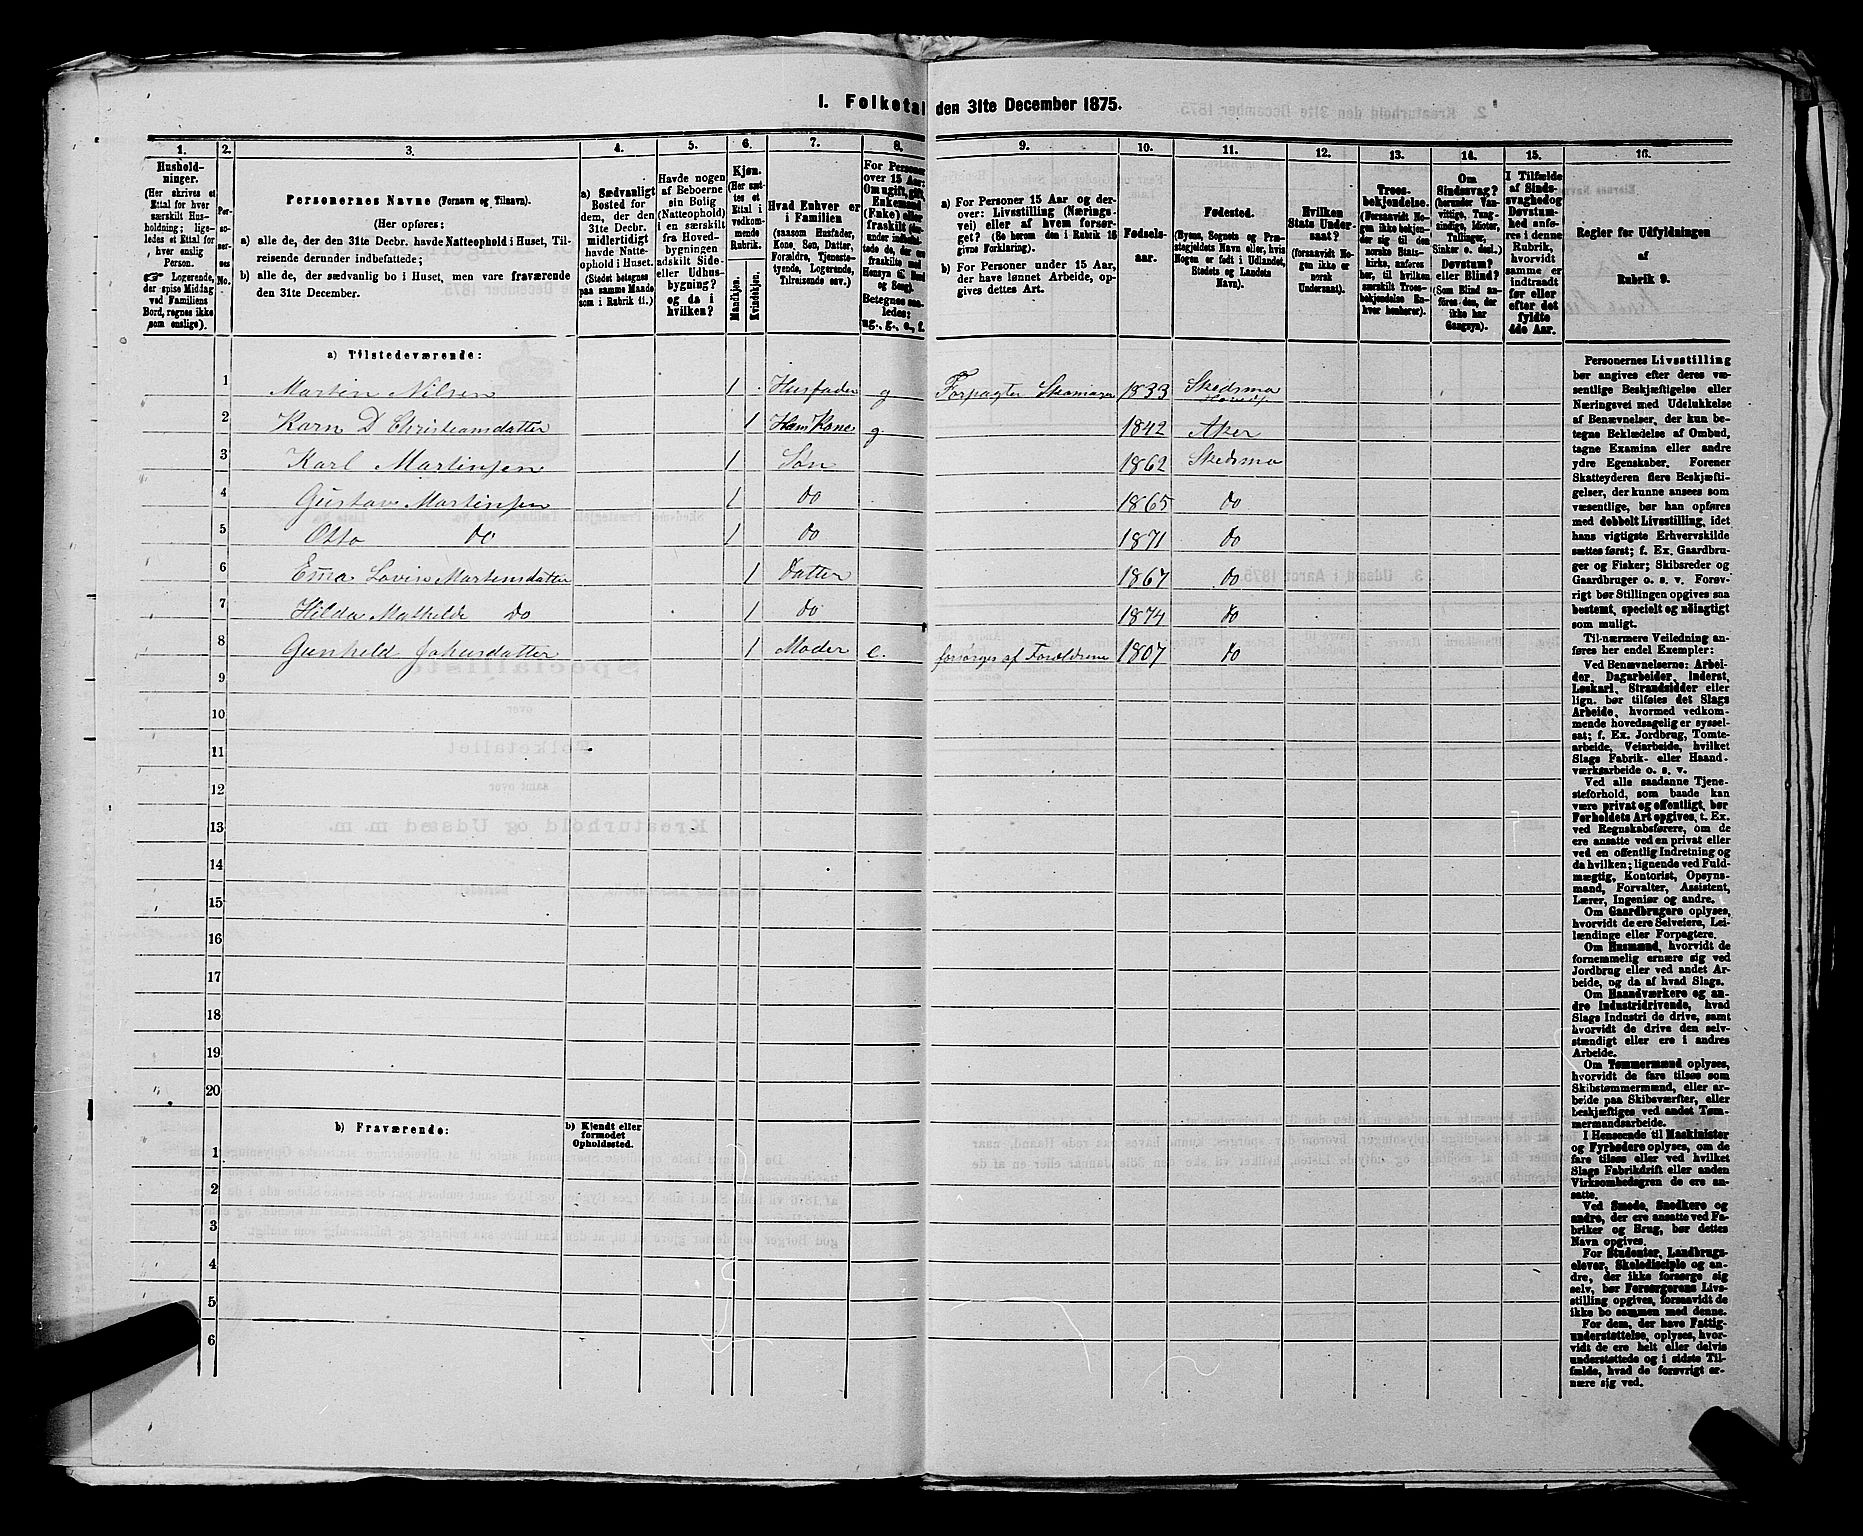 1. Folketal den 31te December 1875.
1.
2.
3.
4.
5.
6.
7.
8.
9.
10.
11.
12.
13.
14.
15.
16.
Hushold-
ninger.
(Her skrives et
Ettal for hver
særskilt Hus-
holdning; lige-
ledes et Ettal for
hver enslig
Person.
Logerende,
der spise Middag
ved Familiens
Bord, regnes ikke
som enslige).
Per-
so-
ner-
nes
No.
Personernes Navne (Fornavn og Tilnavn).
(Her opføres:
a) alle de, der den 31te Decbr. havde Natteophold i Huset, Til-
reisende derunder indbefattede;
b) alle de, der sædvanlig bo i Huset, men vare fraværende
den 31te December.
a) Sædvanligt
Bosted for
dem, der den
31te Decbr.
midlertidigt
havde Natte-
ophold i Huset.
(Stedet betegnes
paa samme Maade
som i Rubrik 11.)
Havde nogen
af Beboerne
sin Bolig
(Natteophold)
i en særskilt
fra Hoved-
bygningen
adskilt Side-
eller Udhus-
bygning?
og da i
hvilken?
Kjøn.
(Her sæt-
tes et
Ettal i
vedkom-
mende
Rubrik.
Mandkjøn.
Kvindekjøn.
Hvad Enhver er
i Familien
(saasom Husfader,
Kone, Søn, Datter,
Forældre, Tjeneste-
tyende, Logerende,
Tilreisende osv.)
For Personer
over 15 Aar:
Om ugift, gift,
Enkemand
(Enke) eller
fraskilt
Betegnes saa-
ledes:
ug., g., e., f.
a) For Personer 15 Aar og der-
over: Livsstilling (Nærings-
vei) eller af hvem forsør-
get? (Se herom den i Rubrik 16
givne Forklaring).
b) For Personer under 15 Aar,
der have lønnet Arbeide, op-
gives dettes Art.
Fødsels-
aar.
Fødested.
(Byens, Sognets og Præ-
stegjeldets Navn eller, hvis
Nogen er født i Udlandet,
Stedets og Landets
Navn).
Hvilken
Stats Under-
saat?
(forsaavidt No-
gen ikke er
norsk
Undersaat).
Troes-
bekjendelse.
(Forsaavidt No-
gen ikke bekjen-
der sig til den
norske Stats-
kirke, anføres
her, til hvilken
særskilt Troes-
bekjendelse En-
hver henhører).
Om
Sindssvag?
(herunder Van-
vittige, Tung-
sindige, Idioter,
Tullinger,
Sinker o. desl.)
Døvstum?
eller Blind?
(Som Blind an-
føres den, der
ikke har
Gangsyn).
I Tilfælde
af Sinds-
svaghed og
Døvstum-
hed anfø-
res i denne
Rubrik,
hvorvidt
samme er
indtraadt
før eller
efter det
fyldte
4de Aar.
Regler for Udfyldningen
af
Rubrik 9.
a) Tilstedeværende:
1 Martin Nilsen 1 Husfader g Forpagter Skomager 1833 Skedsmo
2 Karn D Christiansdatter 1 Hans Kone g. 1842 Aker
3 Karl Martinsen 1 Søn 1862 Skedsmo
4 Gustav Martinsen 1 do 1865 do
5 Otto do 1 do 1871 do
6 Ema Lovise Martinsdatter 1 datter 1867 do
7 Hilda Mathilde do 1 do 1874 do
8 Gunhild Johnsdatter 1 Moder e. forsørges af Forældrene 1807 do
9
10
11
12
13
14
15
16
17
18
19
20
b) Fraværende:
b) Kjendt eller
formodet
Opholdssted.
1
2
3
4
5
6
Personernes Livsstilling
bør angives efter deres væ-
sentlige Beskjæftigelse eller
Næringsvei med Udelukkelse
af Benævnelser, der kun be-
tegne Beklædelse af Ombud,
tagne Examina eller andre
ydre Egenskaber. Forener
Skatteyderen flere Beskjæfti-
gelser, der kunne ansees som
væsentlige, bør han opføres
med dobbelt Livsstilling, idet
hans vigtigste Erhvervskilde
sættes først; f. Ex. Gaardbru-
ger og Fisker; Skibsreder og
Gaardbruger o. s. v. Forøv-
rigt bør Stillingen opgives saa
bestemt, specielt og nøiagtigt
som muligt.
Til nærmere Veiledning an-
føres her endel Exempler:
Ved Benævnelserne: Arbei-
der, Dagarbeider, Inderst,
Løskarl, Strandsidder eller
lign. bør tilføies det Slags
Arbeide, hvormed vedkom-
mende hovedsagelig er syssel-
sat; f. Ex. Jordbrug, Tomte-
arbeide, Veiarbeide, hvilket
Slags Fabrik- eller Haand-
værksarbeide o. s. v.
Ved alle saadanne Tjene-
steforhold, som baade kan
være privat og offentligt, bør
Forholdets Art opgives, f. Ex.
ved Regnskabsførere, om de
ere ansatte ved en privat eller
ved en offentlig Indretning og
da hvilken; lignende ved Fuld-
mægtig, Kontorist, Opsyns-
mand, Forvalter, Assistent,
Lærer, Ingeniør og andre.
Om Gaardbrugere oplyses,
hvorvidt de ere Selveiere, Lei-
lændinge eller Forpagtere.
Om Husmænd, hvorvidt de
fornemmelig ernære sig ved
Jordbrug eller ved andet Ar-
beide, og da af hvad Slags.
Om Haandværkere og an-
dre Industridrivende, hvad
Slags Industri de drive, samt
hvorvidt de drive den selv-
stændigt eller ere i andres
Arbeide.
Om Tømmermænd oplyses,
hvorvidt de fare tilsøs som
Skibstømmermænd, eller ar-
beide paa Skibsværfter, eller
beskjæftiges ved andet Tøm-
mermandsarbeide.
I Henseende til Maskinister
og Fyrbødere oplyses, om de
fare tilsøs eller ved hvilket
Slags Fabrikdrift eller anden
Virksomhedsgren de ere an-
satte.
Ved Smede, Snedkere og
andre, der ere ansatte ved Fa-
briker og Brug, bør dettes
Navn opgives.
For Studenter, Landbrugs-
elever, Skoledisciple og an-
dre, der ikke forsørge sig
selv, bør Forsørgerens Livs-
stilling opgives, forsaavidt de
ikke bo sammen med denne.
For dem, der have Fattig-
understøttelse, oplyses, hvor-
vidt de ere helt eller delvis
understøttede og i sidste Til-
fælde, hvad de forøvrigt er-
nære sig ved.